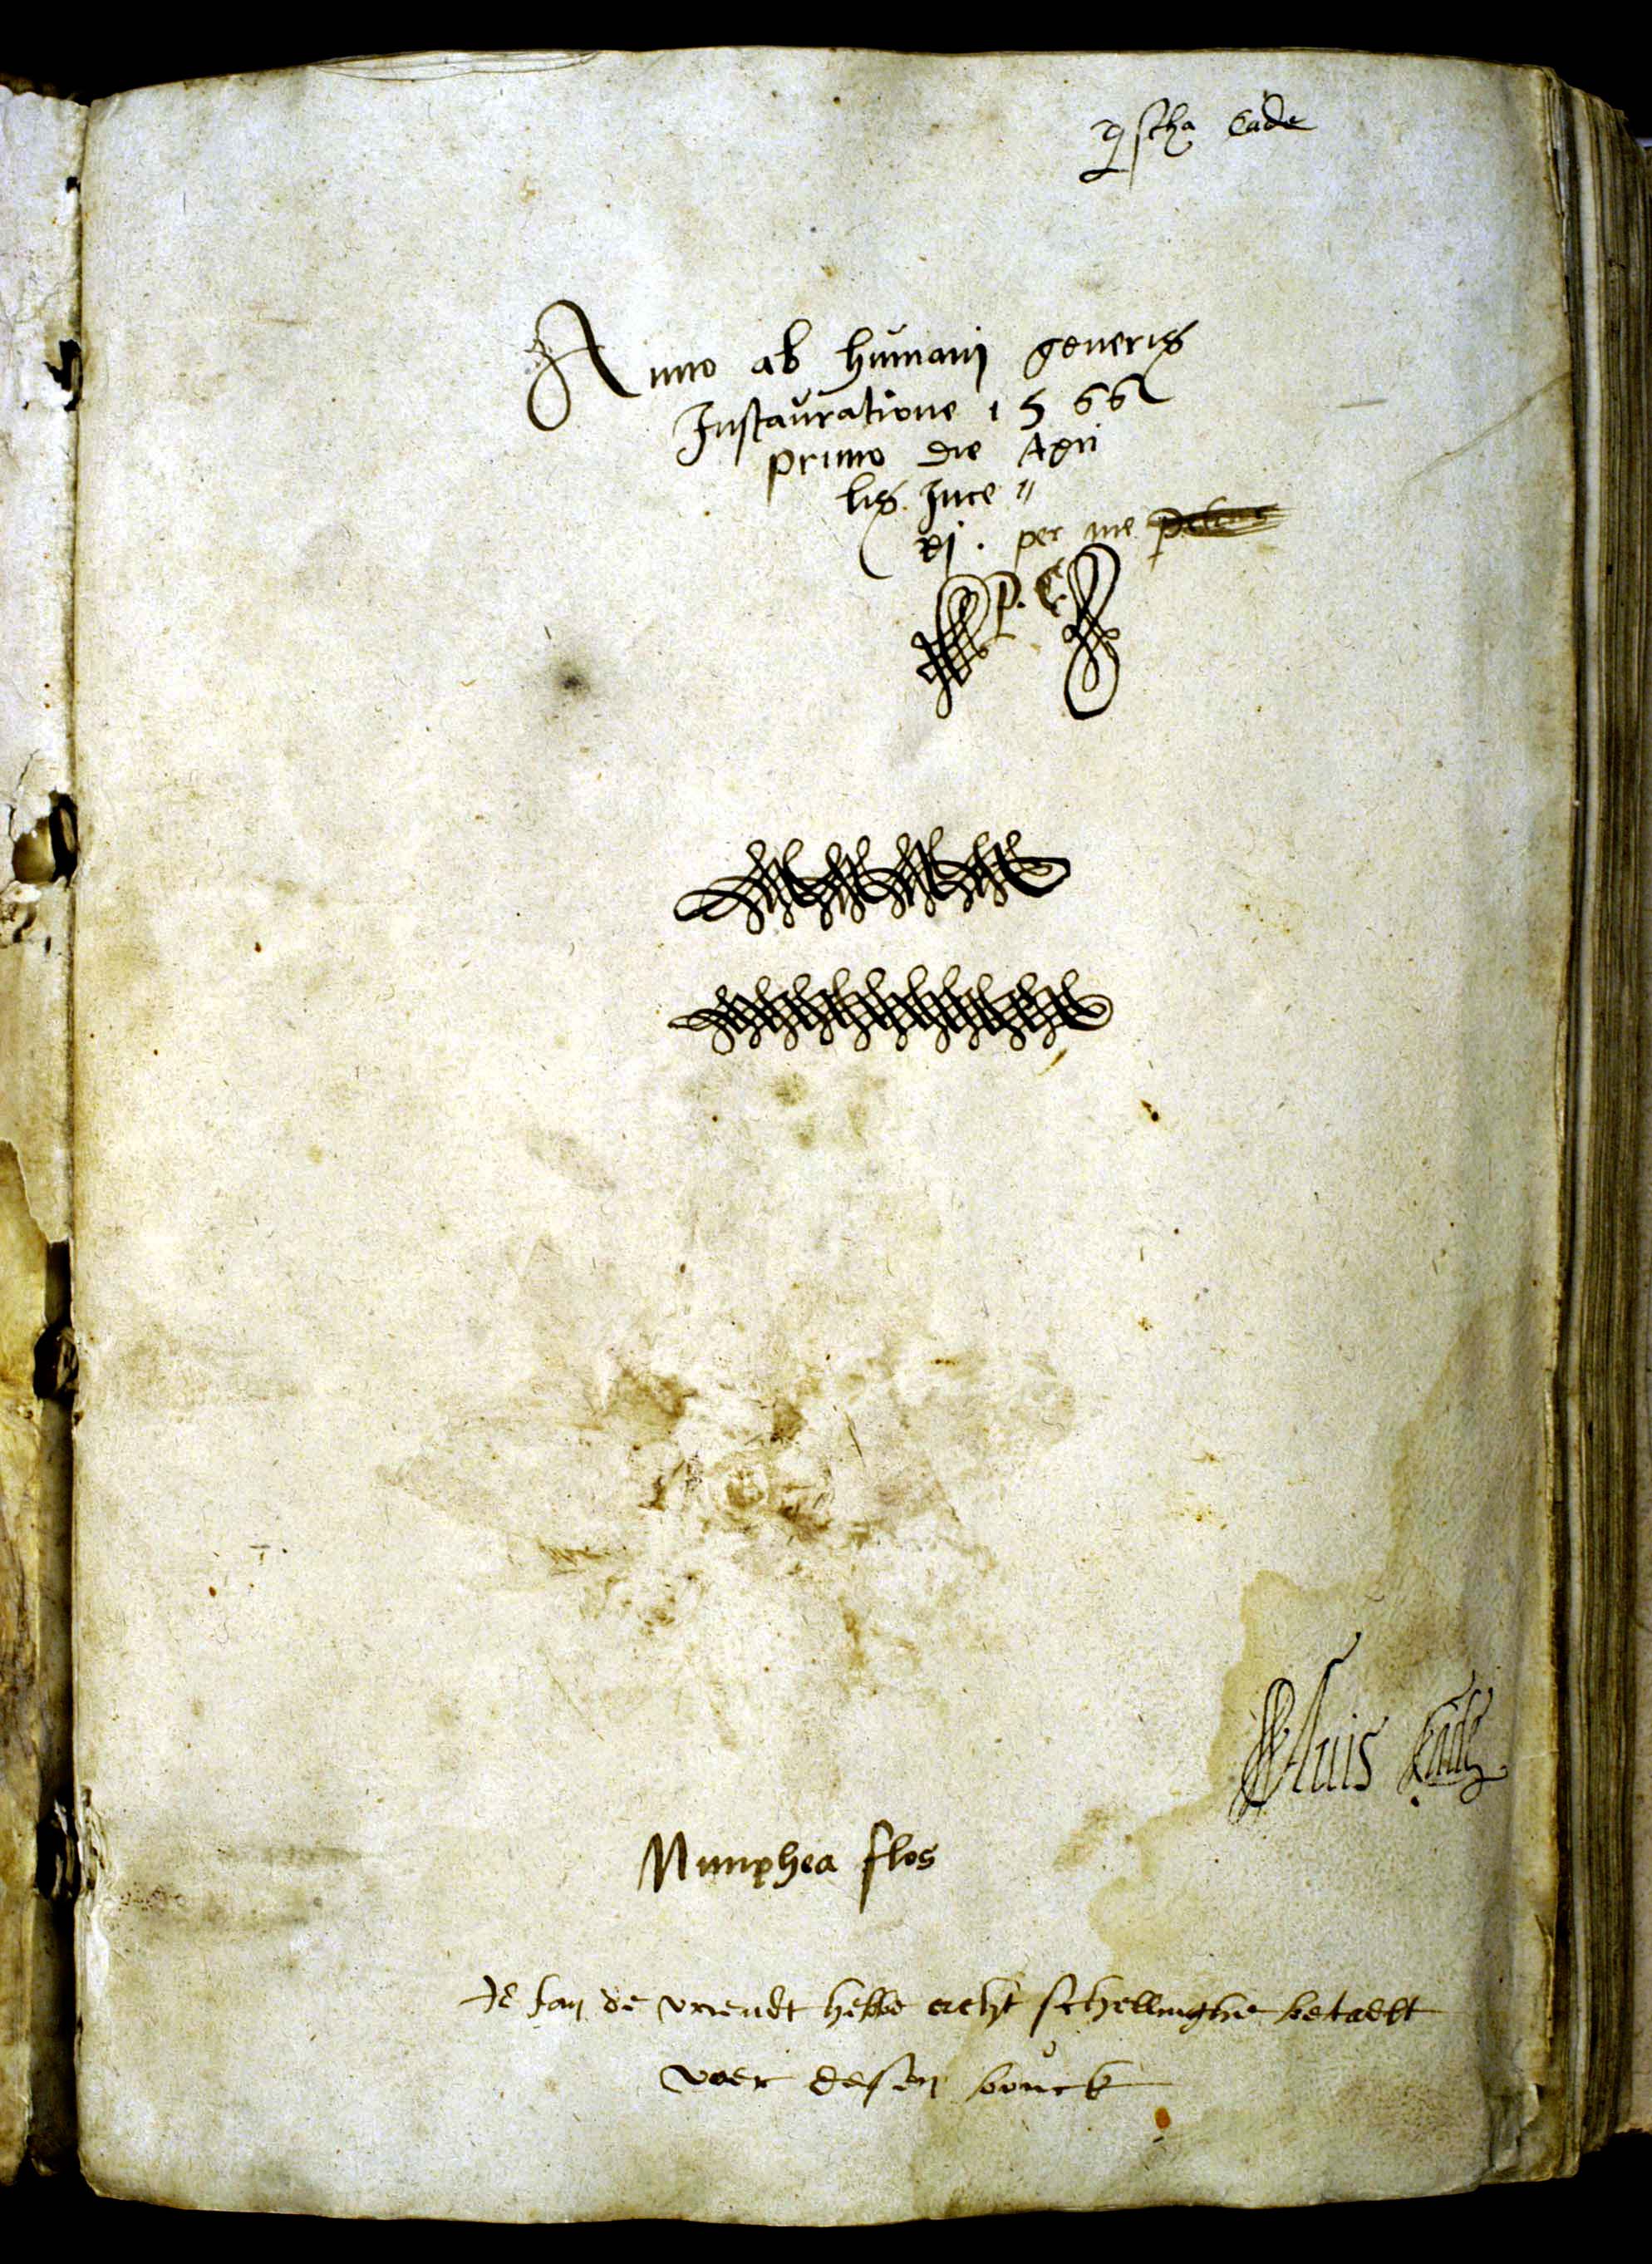 Cade
Anno ab humanj generis
Instauratione 1566
primo die Apri
lis Ince〃
pj. per me
P. C.
Luis Cade
Nimphea flos
Ic Jan de vriendt hebbe acht schellinghe betaelt
voer desen bouck